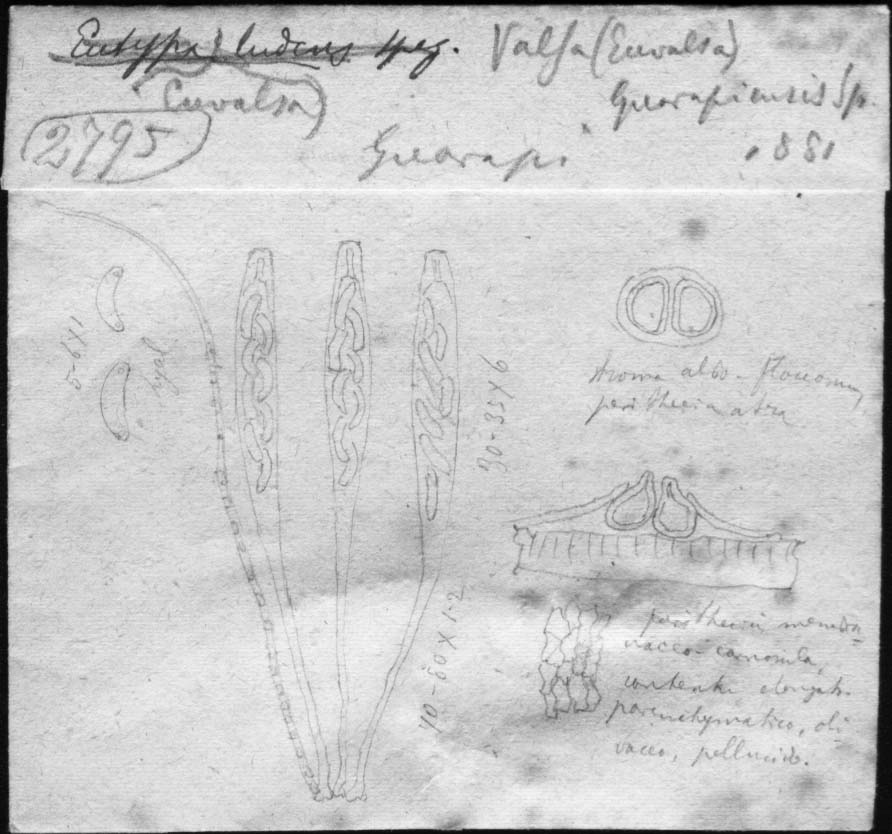 Eutypa ludens Speg. Valsa (Euvalsa)
(Euvalsa)
Guarapiensis Sp.
2795
Guarapi
1881
5-6x1
hyal
30-35x6
40-60x1-2
stroma albo-floccosum,
perithecia atra
perithecii membra-
naceo-carnosula,
contextu elongat.
parenchymatico, oli-
vaceo, pellucido.